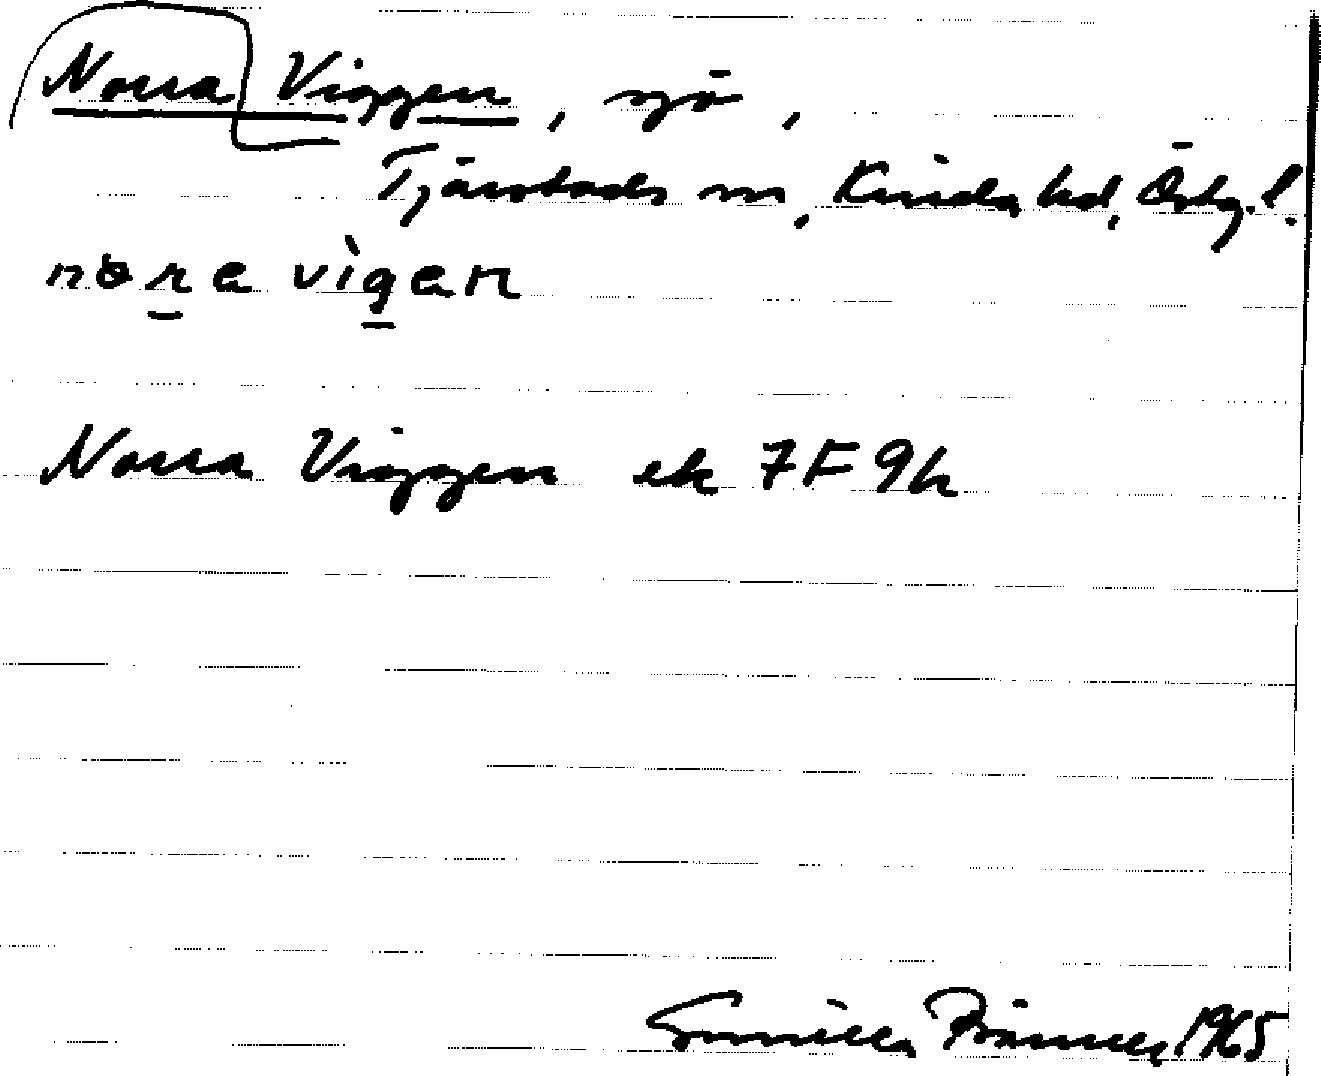 Norra Viggen, sjö,
Tjärstads sn, Kinda hd, Östg. l.
nora vìgan
Norra Viggen ek 7F9h
Gunilla 1965